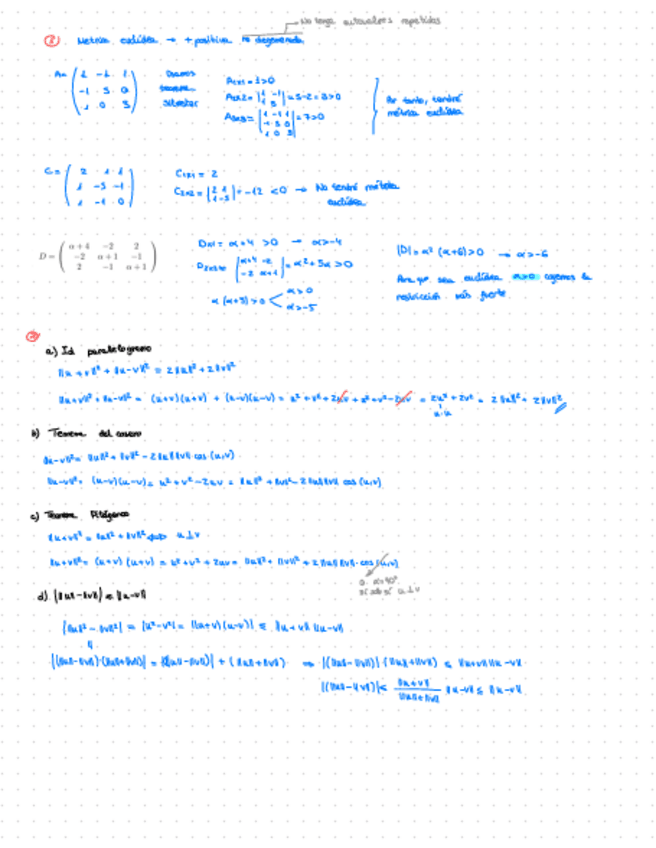 No tenga autovalores repetidos
① Métrica euclídea → + positiva no degenerada
A = ( 1 -1 1 ; -1 5 0 ; 1 0 3 ) Usamos teorema Silvester
A₁ₓ₁ = 1 > 0
A₂ₓ₂ = |1 -1; 1 5| = 5-2 = 3 > 0
A₃ₓ₃ = |1 -1 1; 1 5 0; 1 0 3| = 7 > 0
Por tanto, tendré métrica euclídea
C = ( 2 1 1 ; 1 -5 -1 ; 1 -1 0 )
C₁ₓ₁ = 2
C₂ₓ₂ = |2 1; 1 -5| = -12 < 0 → No tendré métrica euclídea
D = ( α+4 -2 2 ; -2 α+1 -1 ; 2 -1 α+1 )
D₁ₓ₁ = α+4 > 0 → α>-4
D₂ₓ₂ = |α+4 -2; -2 α+1| = α²+5α > 0
α(α+5) > 0 < α>0 α>-5
|D| = α² (α+6) > 0 → α>-6
Para que sea euclídea α>0 cogemos la restricción más fuerte.
②
a) Id paralelogramo
‖u+v‖² + ‖u-v‖² = 2‖u‖² + 2‖v‖²
‖u+v‖² + ‖u-v‖² = (u+v)(u+v) + (u-v)(u-v) = u² + v² + 2uv + u² + v² - 2uv = 2u² + 2v² = 2‖u‖² + 2‖v‖²
u·u
b) Teorema del coseno
‖u-v‖² = ‖u‖² + ‖v‖² - 2‖u‖‖v‖ cos (u,v)
‖u-v‖² = (u-v)(u-v) = u² + v² - 2uv = ‖u‖² + ‖v‖² - 2‖u‖‖v‖ cos (u,v)
c) Teorema Pitágoras
‖u+v‖² = ‖u‖² + ‖v‖² ⟺ u⊥v
‖u+v‖² = (u+v)(u+v) = u² + v² + 2uv = ‖u‖² + ‖v‖² + 2‖u‖‖v‖·cos(u,v)
0 α=90°
si solo si u⊥v
d) |‖u‖-‖v‖| ≤ ‖u-v‖
|‖u‖² - ‖v‖²| = |u²-v²| = |(u+v)(u-v)| ≤ ‖u+v‖ ‖u-v‖
|(‖u‖-‖v‖)·(‖u‖+‖v‖)| = |(‖u‖-‖v‖)| + (‖u‖+‖v‖) ⇒ |(‖u‖-‖v‖)| (‖u‖+‖v‖) ≤ ‖u+v‖‖u-v‖
|(‖u‖-‖v‖)| ≤ ‖u+v‖ / ‖u‖+‖v‖ ‖u-v‖ ≤ ‖u-v‖